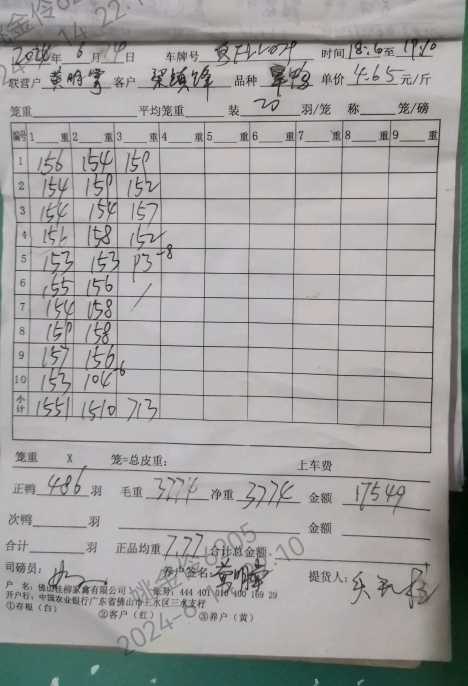 2024年6月14日 车牌号 时间18:6至19:10
联营户 黄明 客户 品种 单价4.65元/斤
笼重 平均笼重 装20羽/笼 称 笼/磅
编号 1 重 2 重 3 重 4 重 5 重 6 重 7 重 8 重 9 重
1 156 154 150
2 154 150 152
3 154 154 157
4 151 158 152
5 153 153 -8
6 155 156
7 154 158
8 150 158
9 157 156
10 153 104 -6
小计 1551 1510 713
笼重 X 笼=总皮重: 上车费
正鸭486羽 毛重3774 净重3774 金额17549
次鸭 羽 金额
合计 羽 正品均重7.77 合计总金额
司磅员: 养户签名: 黄明 提货人:
户 名:佛山 家禽有限公司 账号:444 401 010 400 169 29
开户行:中国农业银行广东省佛山市三水区三水支行
①存根(白) ②客户(红) ③养户(黄)